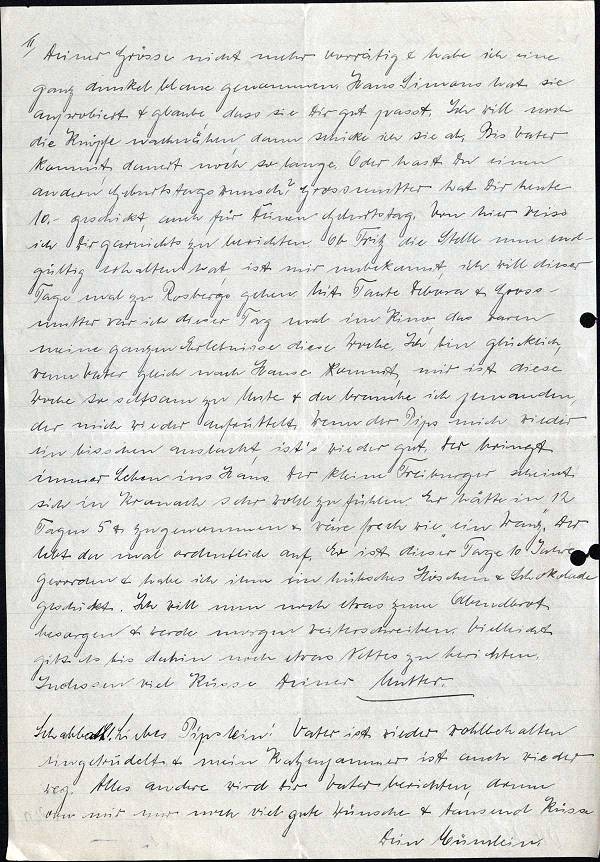 II/
Deiner Grösse nicht mehr vorrätig & habe ich eine
ganz dunkel blaue genommen. Hans Simons hat sie
anprobiert & glaube, dass sie Dir gut passt. Ich will noch
die Knöpfe nachnähen, dann schicke ich sie ab. Bis Vater
kommt, dauert noch so lange. Oder hast Du einen
andern Geburtstagswunsch? Grossmutter hat Dir heute
10.- geschickt, auch für Deinen Geburtstag. Von hier weiss
ich Dir garnichts zu berichten. Ob Fritz die Stelle nun end-
gültig erhalten hat, ist mir unbekannt, ich will dieser
Tage mal zu Rosbergs gehen. Mit Tante Debora & Gross-
mutter war ich dieser Tag mal im Kino, das waren
meine ganzen Erlebnisse diese Woche. Ich bin glücklich,
wenn Vater gleich nach Hause kommt, mir ist diese
Woche so seltsam zu Mute & da brauche ich jemanden,
der mich wieder aufrüttelt. Wenn der Pips mich wieder
ein bisschen auslacht, ist's wieder gut. Der bringt
immer Leben ins Haus. Der kleine Freiburger scheint
sich in Kronach sehr wohl zu fühlen. Er hätte in 12
Tagen 5 zugenommen & wäre frech wie ein . Der
lebt da mal ordentlich auf. Er ist dieser Tage 10 Jahre
geworden & habe ich ihm ein hübsches Höschen & Schokolade
geschickt. Ich will nun noch etwas zum Abendbrot
besorgen & werde morgen weiterschreiben. Vielleicht
gibt es bis dahin noch etwas Nettes zu berichten.
Indessen viel Küsse Deiner Mutter.
Liebes Pipslein! Vater ist wieder wohlbehalten
eingetrudelt & mein Katzenjammer ist auch wieder
weg. Alles andere wird Dir Vater berichten, darum
von mir nur noch viel gute Wünsche & tausend Küsse
Dein